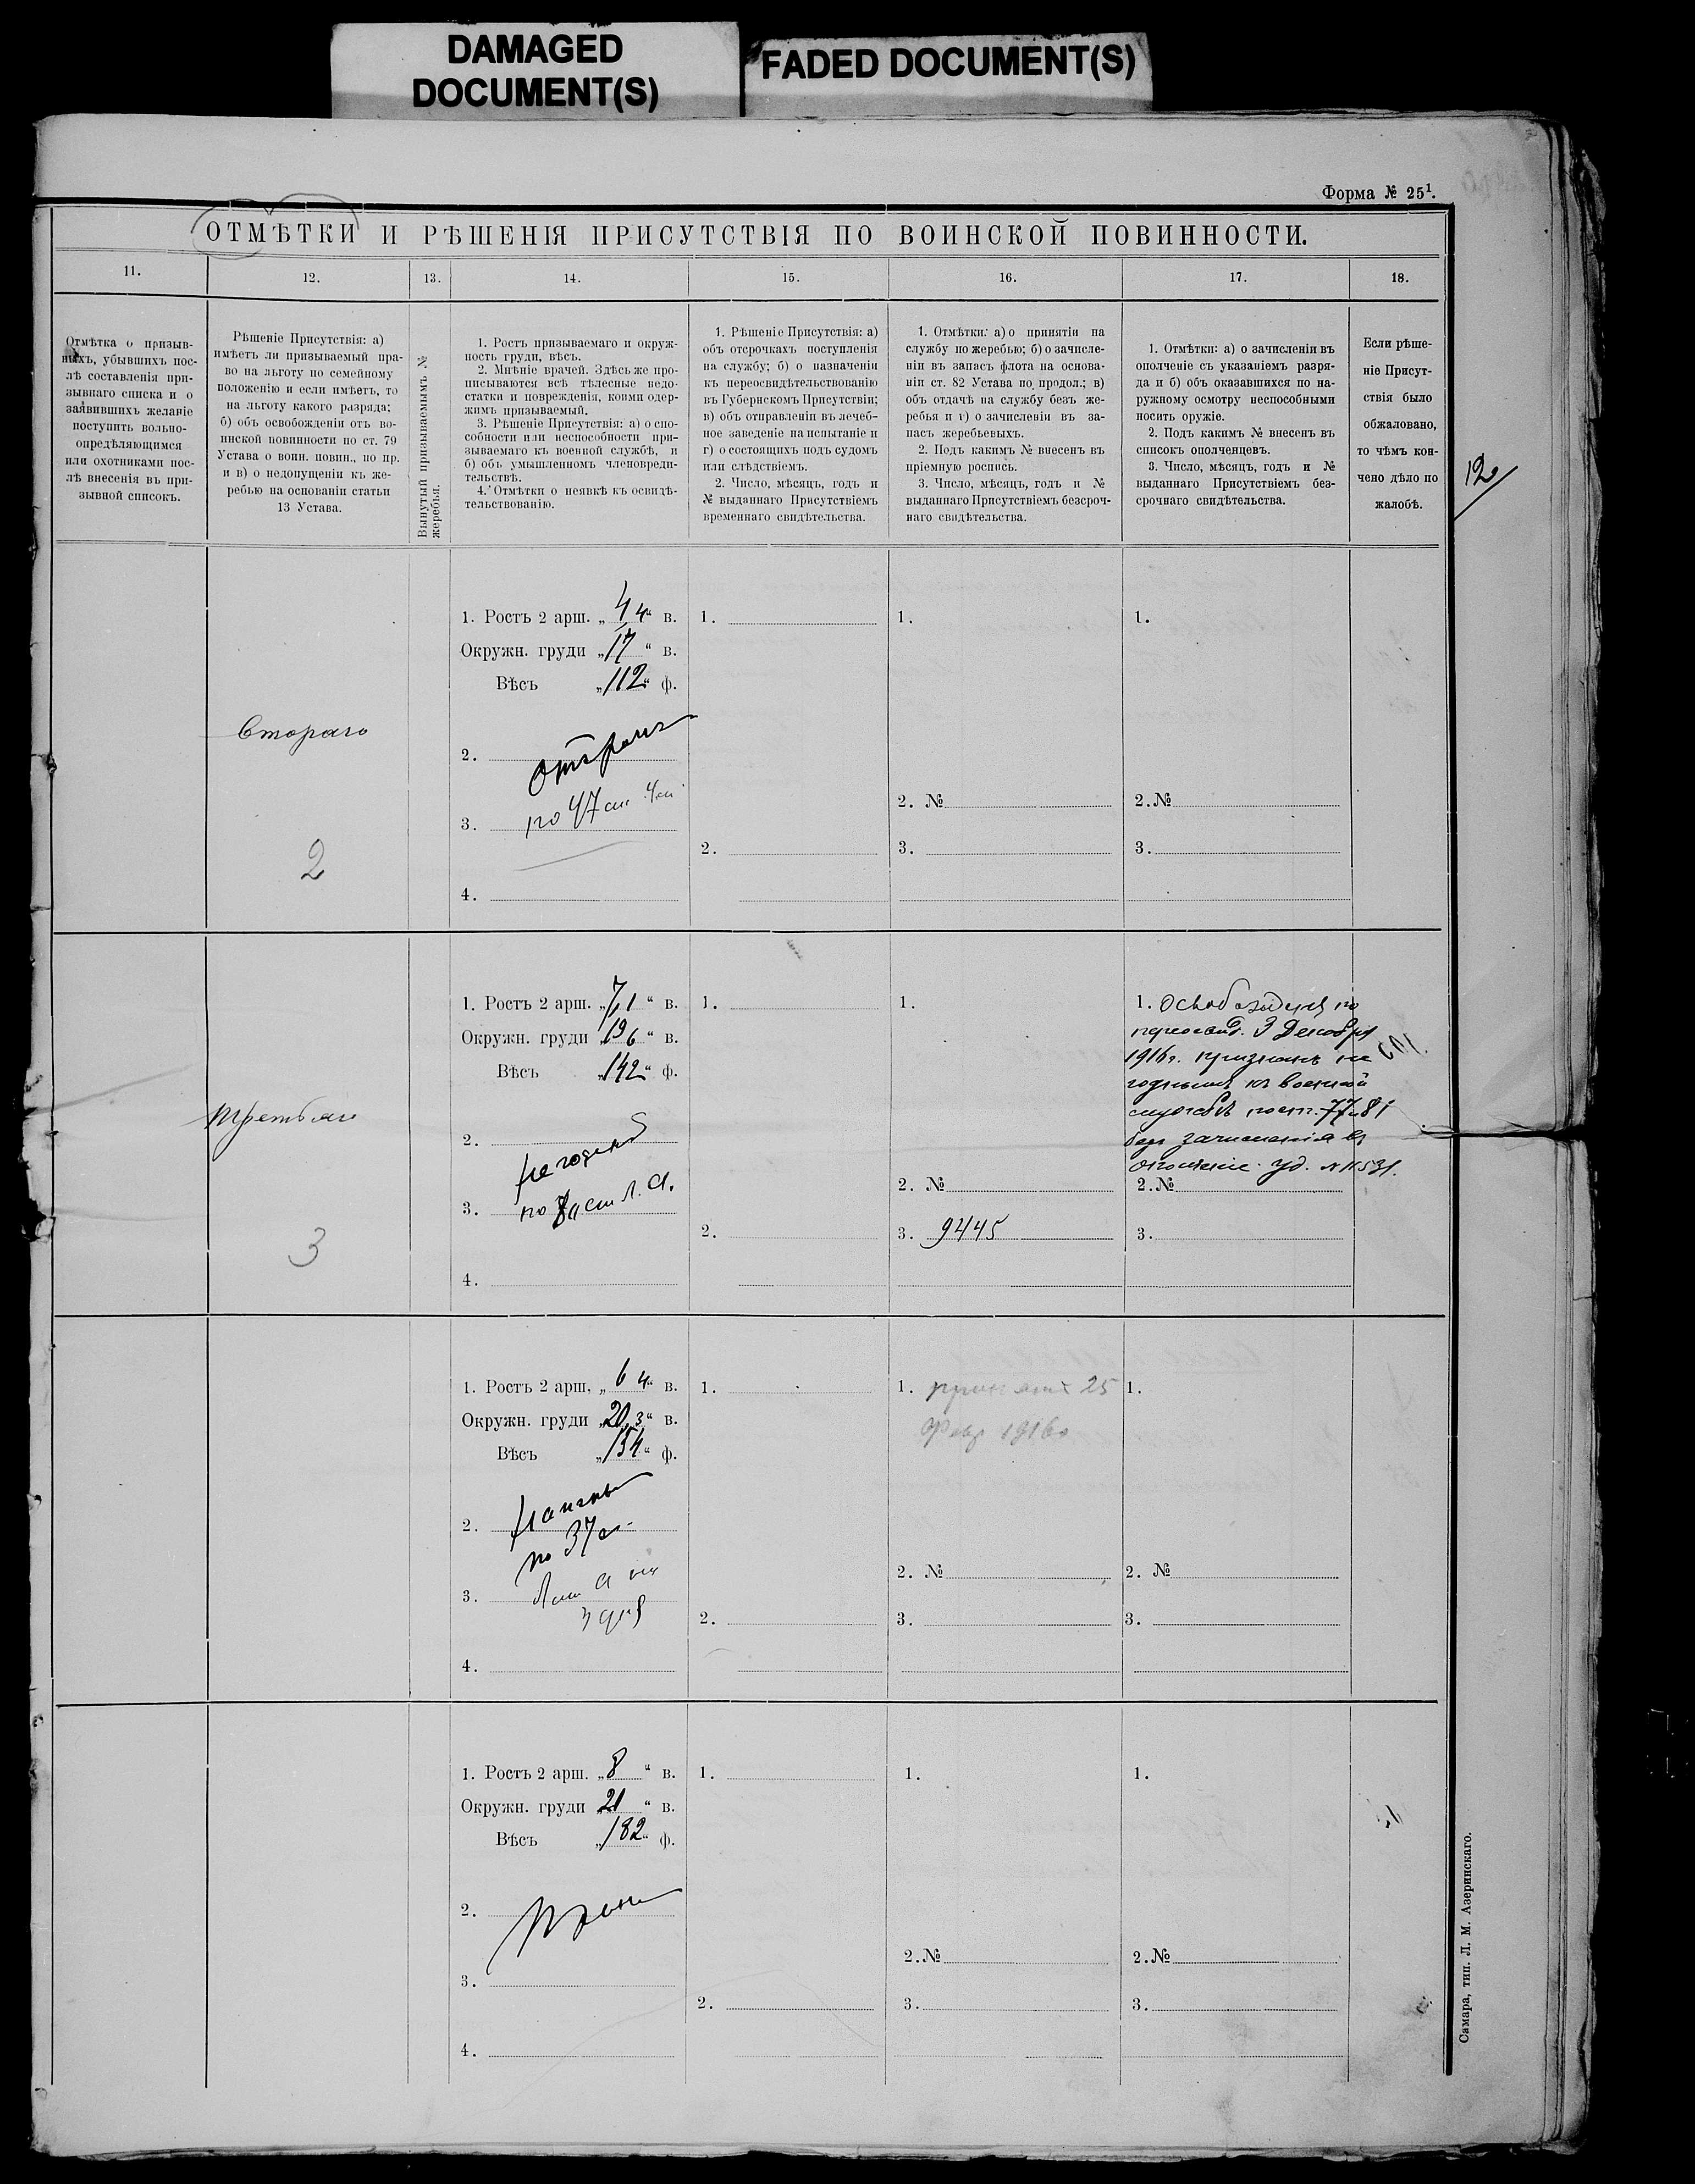 DAMAGED
DOCUMENT(S)
FADED DOCUMENT(S)
Форма № 25¹.
ОТМѢТКИ И РѢШЕНІЯ ПРИСУТСТВІЯ ПО ВОИНСКОЙ ПОВИННОСТИ.
11.
12.
13.
14.
15.
16.
17.
18.
Отмѣтка о призыв-
ныхъ, убывшихъ пос-
лѣ составленія при-
зывнаго списка и о
заявившихъ желаніе
поступить вольно-
опредѣляющимся
или охотниками пос-
лѣ внесенія въ при-
зывной списокъ.
Рѣшеніе Присутствія: а)
имѣетъ ли призываемый пра-
во на льготу по семейному
положенію и если имѣетъ, то
на льготу какого разряда;
б) объ освобожденіи отъ во-
инской повинности по ст. 79
Устава о воин. повин., по пр.
и в) о недопущеніи къ же-
ребью на основаніи статьи
13 Устава.
Вынутый призываемымъ №
жеребья.
1. Ростъ призываемаго и окруж-
ность груди, вѣсъ.
2. Мнѣніе врачей. Здѣсь же про-
писываются всѣ тѣлесные недо-
статки и поврежденія, коими одер-
жимъ призываемый.
3. Рѣшеніе Присутствія: а) о спо-
собности или неспособности при-
зываемаго къ военной службѣ, и
б) объ умышленномъ членовреди-
тельствѣ.
4. Отмѣтки о неявкѣ къ освидѣ-
тельствованію.
1. Рѣшеніе Присутствія: а)
объ отсрочкахъ поступленія
на службу; б) о назначеніи
къ переосвидѣтельствованію
въ Губернскомъ Присутствіи;
в) объ отправленіи въ лечеб-
ное заведеніе на испытаніе и
г) о состоящихъ подъ судомъ
или слѣдствіемъ.
2. Число, мѣсяцъ, годъ и
№ выданнаго Присутствіемъ
временнаго свидѣтельства.
1. Отмѣтки: а) о принятіи на
службу по жеребью; б) о зачисле-
ніи въ запасъ флота на основа-
ніи ст. 82 Устава по продол.; в)
объ отдачѣ на службу безъ же-
ребья и г) о зачисленіи въ за-
пасъ жеребьевыхъ.
2. Подъ какимъ № внесенъ въ
пріемную роспись.
3. Число, мѣсяцъ, годъ и №
выданнаго Присутствіемъ безсроч-
наго свидѣтельства.
1. Отмѣтки: а) о зачисленіи въ
ополченіе съ указаніемъ разря-
да и б) объ оказавшихся по на-
ружному осмотру неспособными
носить оружіе.
2. Подъ какимъ № внесенъ въ
списокъ ополченцевъ.
3. Число, мѣсяцъ, годъ и №
выданнаго Присутствіемъ без-
срочнаго свидѣтельства.
Если рѣше-
ніе Присут-
ствія было
обжаловано,
то чѣмъ кон-
чено дѣло по
жалобѣ.
Втораго
2
1. Ростъ 2 арш. „4 4“ в.
Окружн. груди „17“ в.
Вѣсъ „112“ ф.
2.
3. по 47 ст
4.
1.
2.
1.
2. №
3.
1.
2. №
3.
Третьяго
3
1. Ростъ 2 арш. „7 1“ в.
Окружн. груди „19 6“ в.
Вѣсъ „142“ ф.
2. Негоденъ
3. по
4.
1.
2.
1.
2. №
3. 9445
1. Освобожденъ по
переосвид. 3 Декабря
1916 г. признанъ не
годнымъ къ военной
службѣ по ст. 77 и 81
безъ зачисленія въ
ополченіе. уд. № 11531.
2. №
3.
1. Ростъ 2 арш. „6 4“ в.
Окружн. груди „20 3“ в.
Вѣсъ „154“ ф.
2.
по 37 ст.
3.
4.
1.
2.
1. принятъ 25
Февр 1916 г
2. №
3.
1.
2. №
3.
1. Ростъ 2 арш. „8“ в.
Окружн. груди „21“ в.
Вѣсъ „182“ ф.
2.
3.
4.
1.
2.
1.
2. №
3.
1.
2. №
3.
Самара, тип. Л. М. Азеринскаго.